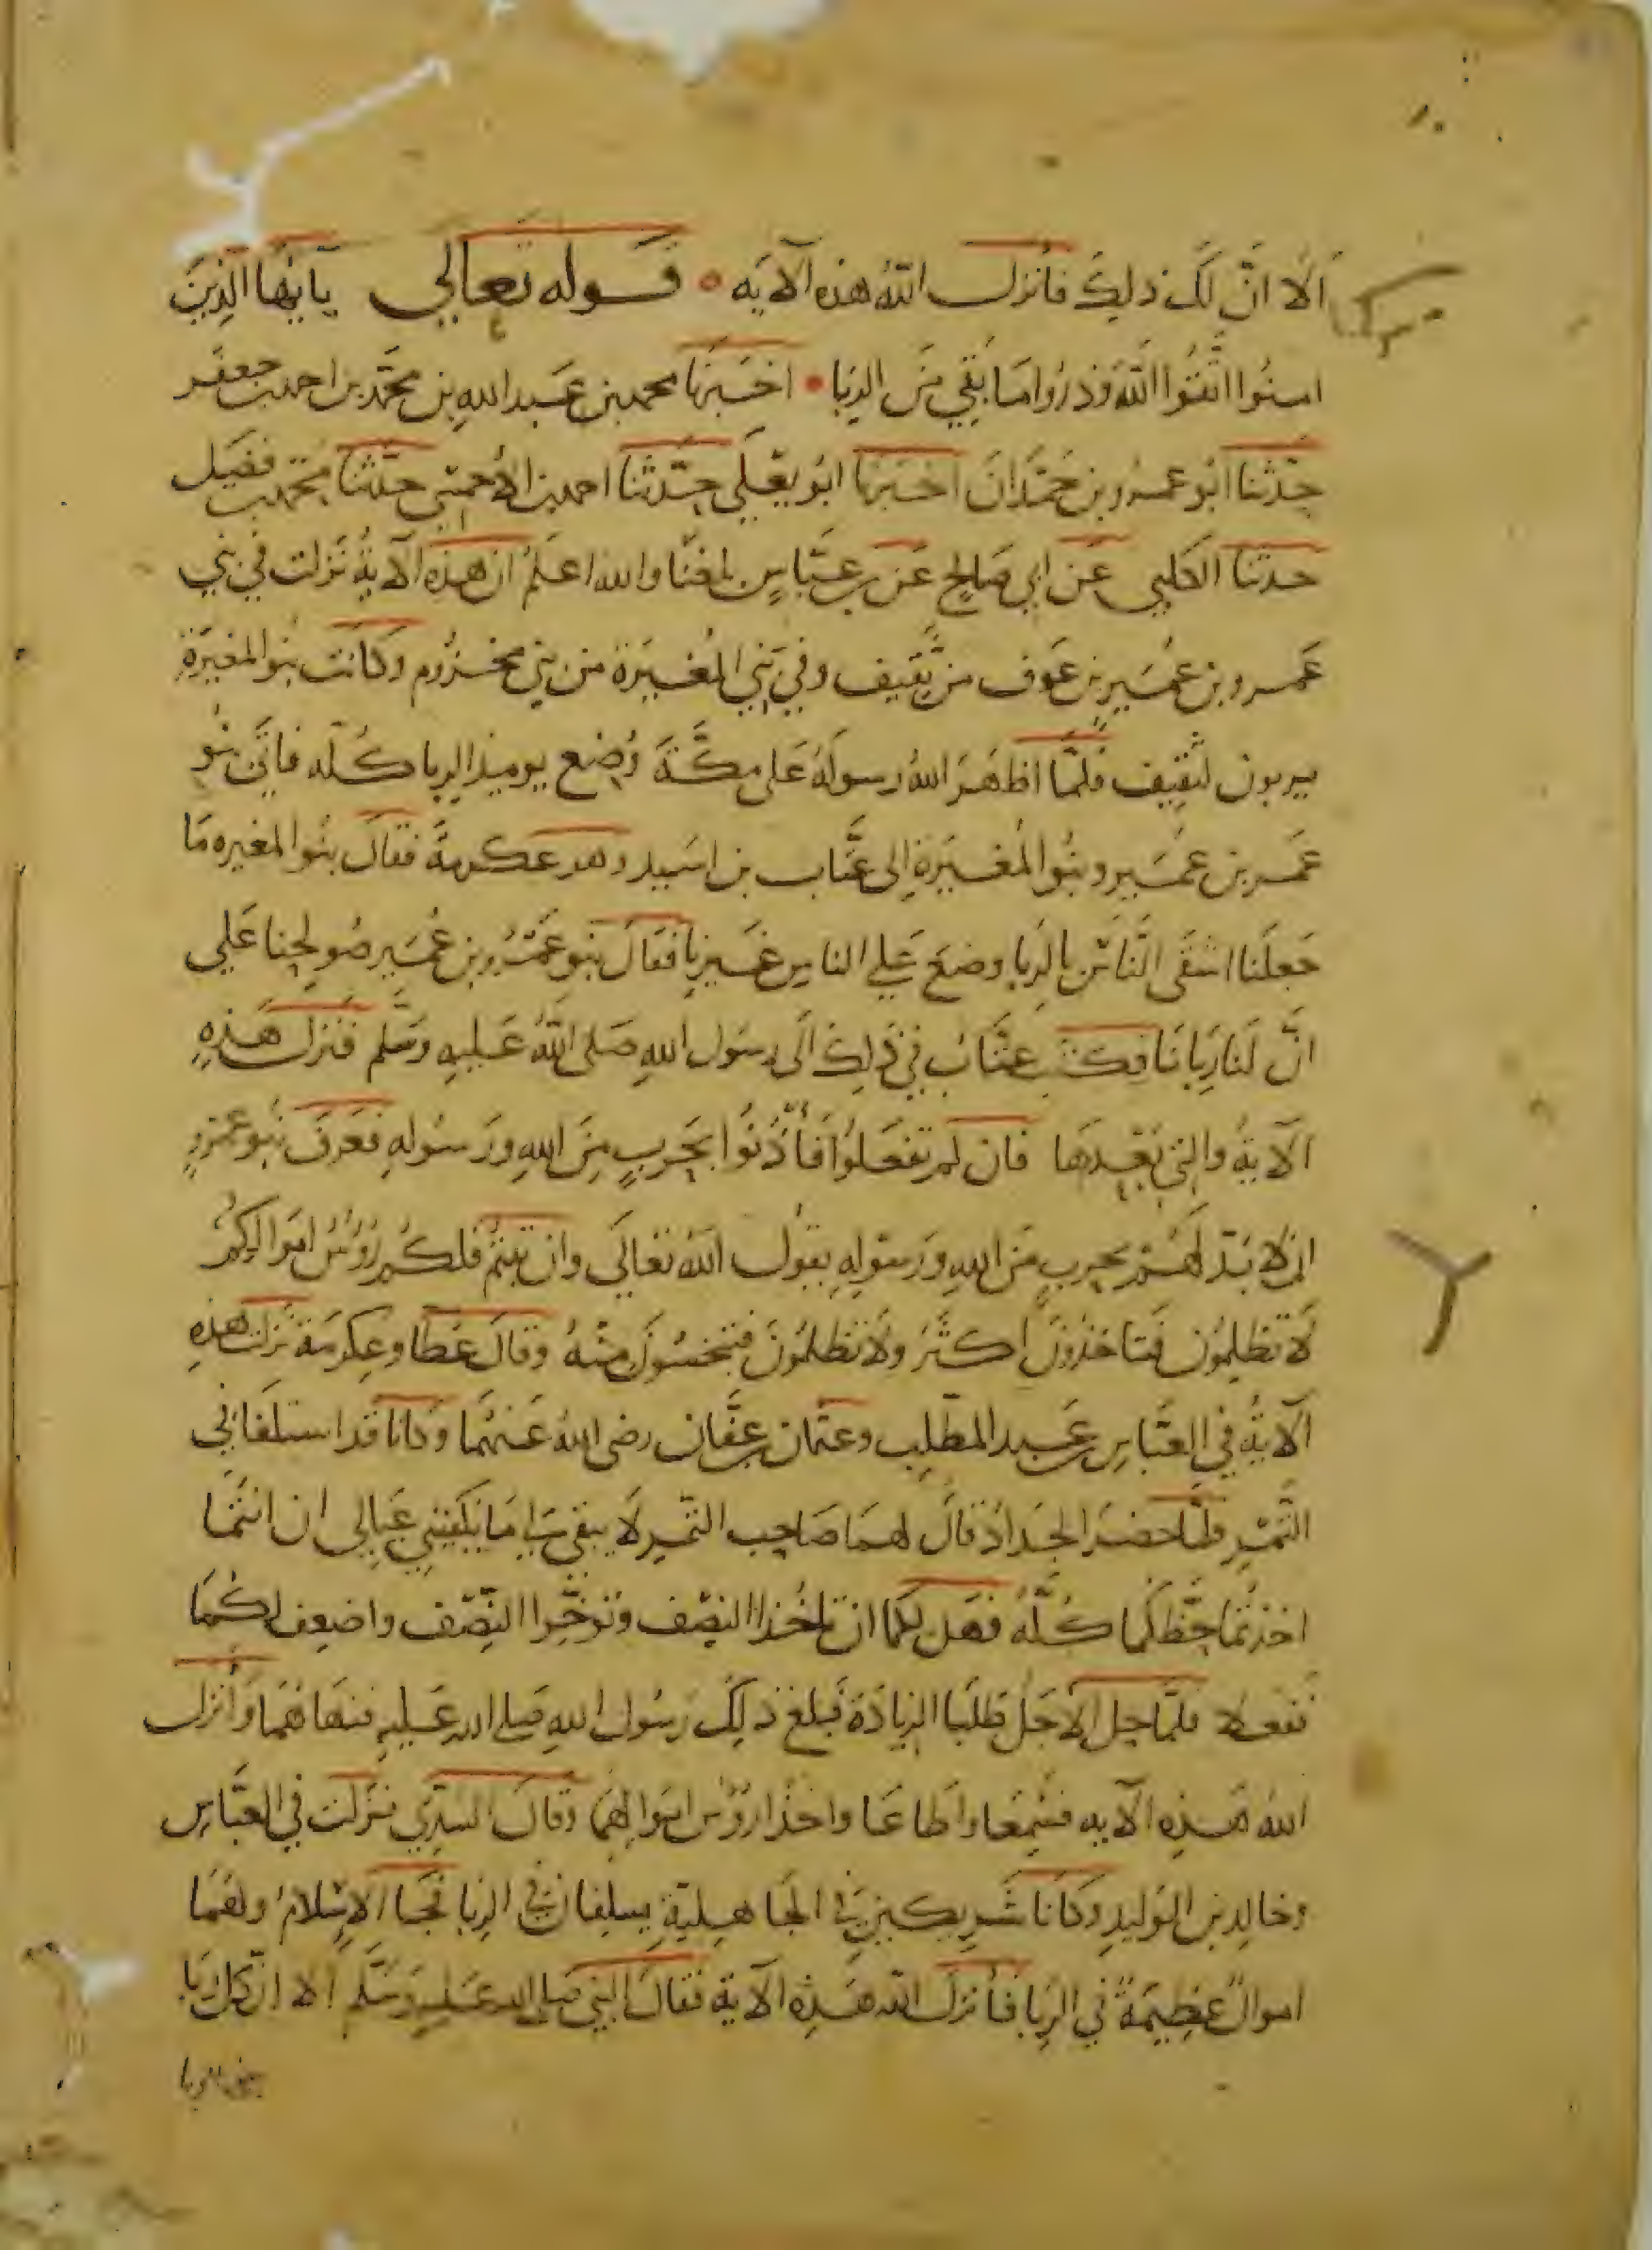 الا ان لك ذلك فأنزل الله هذه الآيه • قوله تعالى يا ايها الذين
امنوا اتقوا الله وذروا ما بقي من الربا • اخبرنا محمد بن عبد الله بن محمد بن احمد بن جعفر
حدثنا ابو عمرو بن حمدان اخبرنا ابو يعلي حدثنا احمد بن الاحمسي حدثنا محمد بن فضيل
حدثنا الكلبي عن ابي صالح عن بن عباس بلغنا والله اعلم ان هذه الآية نزلت في بني
عمرو بن عمير بن عوف من ثقيف وفي بني المغيرة من بني مخزوم وكانت بنوا المغيرة
يربون لثقيف فلما اظهر الله رسوله على مكة وضع يوميذ الربا كله فاتى بنو
عمر بن عمير وبنوا المغيرة الى عتاب بن اسيد وهو عكرمة فقال بنوا المغيره ما
جعلنا اشقى الناس بالربا وضع علي الناس غيرنا فقال بنو عمرو بن عمير صولحنا علي
ان لنا ربانا فكتب عتاب في ذلك الى رسول الله صلى الله عليه وسلم فنزل هذه
الآية والتي بعدها فان لم تفعلوا فأذنوا بحرب من الله ورسوله فعرف بنو عمرو
ان لا بد لهم بحرب من الله ورسوله بقول الله تعالى وان تبتم فلكم رؤس اموالكم
لا تظلمون فتاخذون أكثر ولا تظلمون فتبخسون منه وقال عطا وعكرمة نزلت هذه
الآية في العباس بن عبد المطلب وعثمان بن عفان رضى الله عنهما وكانا قد استلفا في
التمر فلما حضر الجداد قال لهما صاحب التمر لا يبقى لي ما يكفيني عيالي ان انتما
اخذتما حظكما كله فهل لكما ان تاخذا النصف وتوخرا النصف واضعف لكما
ففعلا فلما حل الاجل طلبا الزيادة فبلغ ذلك رسول الله صلى الله عليه فنهاهما وأنزل
الله هذه الآيه فسمعا واطاعا واخذا رؤس اموالهما وقال السدي نزلت في العباس
وخالد بن الوليد وكانا شريكين في الجاهلية يسلفان في الربا فجا الاسلام ولهما
اموال عظيمة في الربا فأنزل الله هذه الآية فقال النبي صلى الله عليه وسلم الا ان كل ربا